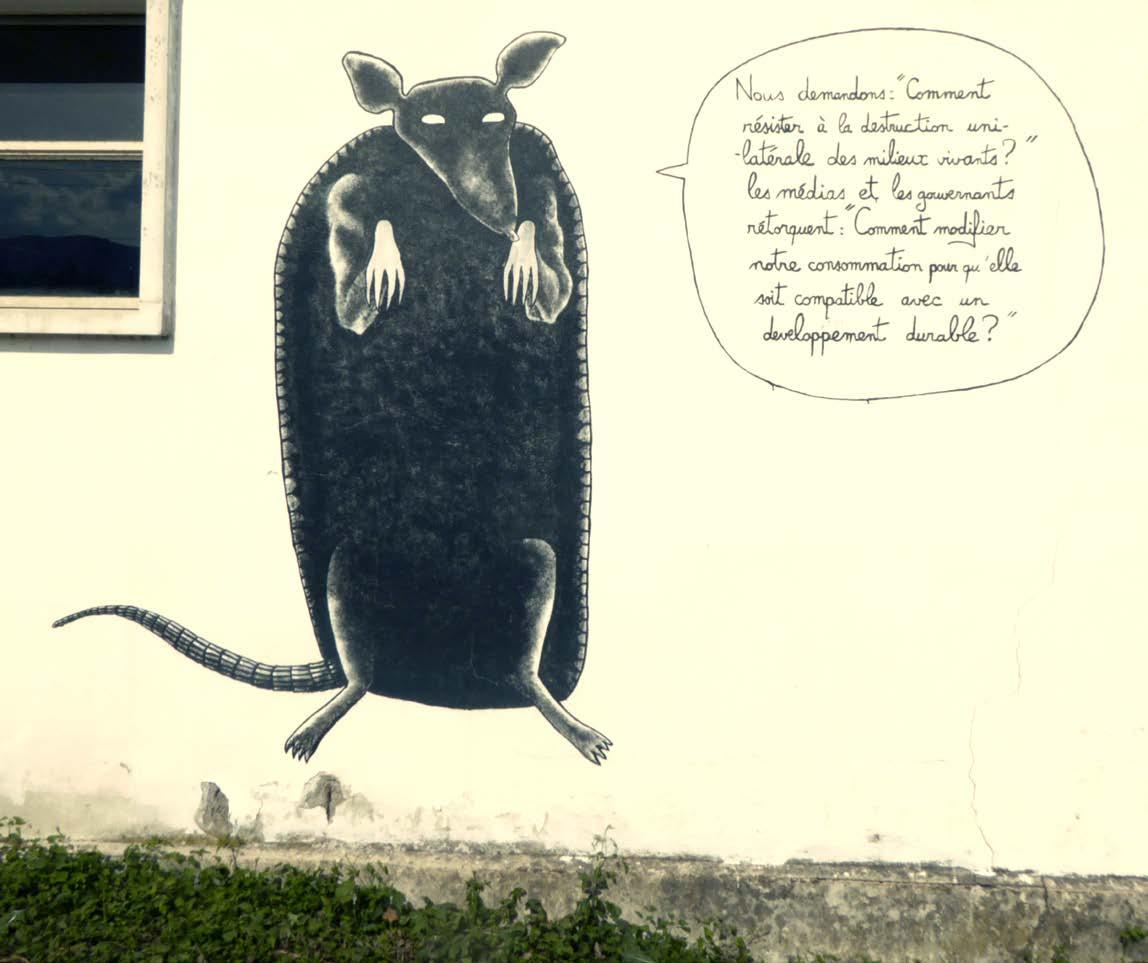 Nous demandons: "Comment
résister à la destruction uni-
-latérale des milieux vivants?"
les médias et les gouvernants
rétorquent: "Comment modifier
notre consommation pour qu'elle
soit compatible avec un
developpement durable?"